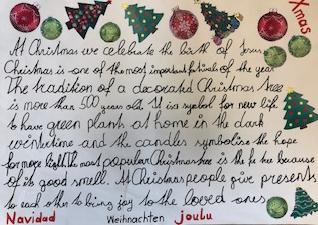 Xmas
At Christmas we celebrate the birth of Jesus
Christmas is one of the most important festivals of the year
The tradition of a decorated Christmas tree
is more than 500 years old. It is a symbol for new life.
to have green plants at home in the dark
wintertime and the candles symbolise the hope
for more light. The most popular Christmas tree is the fir tree because
of its good smell. At Christmas people give presents
to each other to bring joy to the loved ones
Navidad Weihnachten joulu